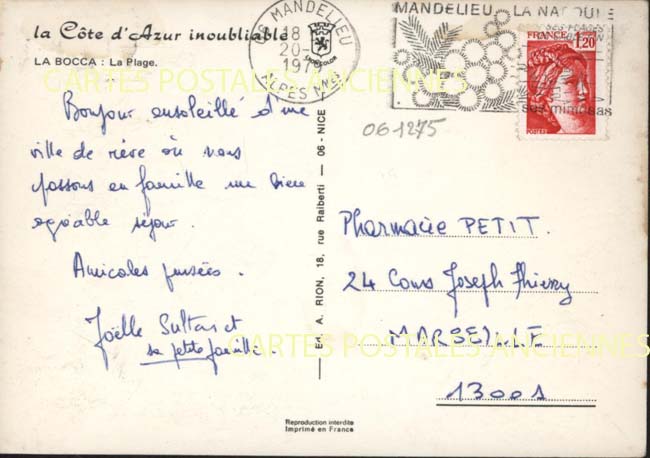 la Côte d'Azur inoubliable
LA BOCCA : La Plage.
06 MANDELIEU
18 H
20-
197
ALPES MMES
MANDELIEU LA NAPOULE
SES PLAGES
ses mimosas
FRANCE
1,20
061275
CARTES POSTALES ANCIENNES
Bonjour ensoleillé d'une
ville de rêve où nous
passons en famille un bien
agréable séjour.
Amicales pensées.
Joëlle Sultan et
sa petite famille.
Ed. A. RION, 18, rue Raiberti — 06 - NICE
Pharmacie PETIT.
24 Cours Joseph Thierry
MARSEILLE
13001
CARTES POSTALES ANCIENNES
Reproduction interdite
Imprimé en France